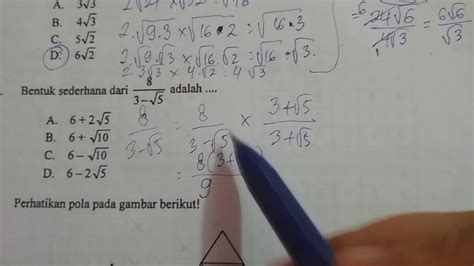 A. 3√3
B. 4√3
C. 5√2
D. 6√2
2.√9.3 × √16.2 = √16.3
2.√9.√3 × √16.√2 = √16.√3
2.3√3 × 4.√2 : 4√3
24√6 / 4√3 = 6√6 / √3
Bentuk sederhana dari 8/(3-√5) adalah ....
A. 6 + 2√5
B. 6 + √10
C. 6 - √10
D. 6 - 2√5
8/(3-√5) = 8/(3-√5) × (3+√5)/(3+√5)
= 8(3+ / 9
Perhatikan pola pada gambar berikut!